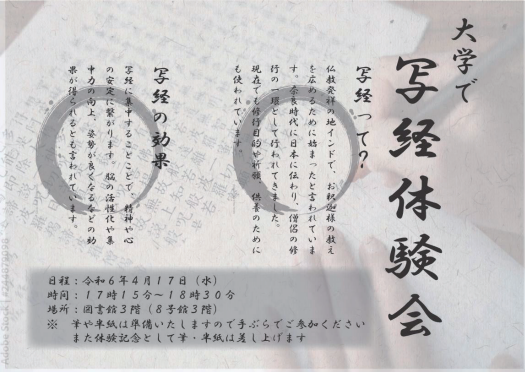 大学で
写経体験会
写経って？
仏教発祥の地インドで、お釈迦様の教え
を広めるために始まったと言われていま
す。奈良時代に日本に伝わり、僧侶の修
行の一環として行われてきました。
現在でも修行目的や祈願、供養のために
も使われています。
写経の効果
写経に集中することで、精神や心
の安定に繋がります。脳の活性化や集
中力の向上、姿勢が良くなるなどの効
果が得られるとも言われています。
日程：令和６年４月１７日（水）
時間：１７時１５分〜１８時３０分
場所：図書館３階（８号館３階）
※　筆や半紙は準備いたしますので手ぶらでご参加ください
また体験記念として筆・半紙は差し上げます